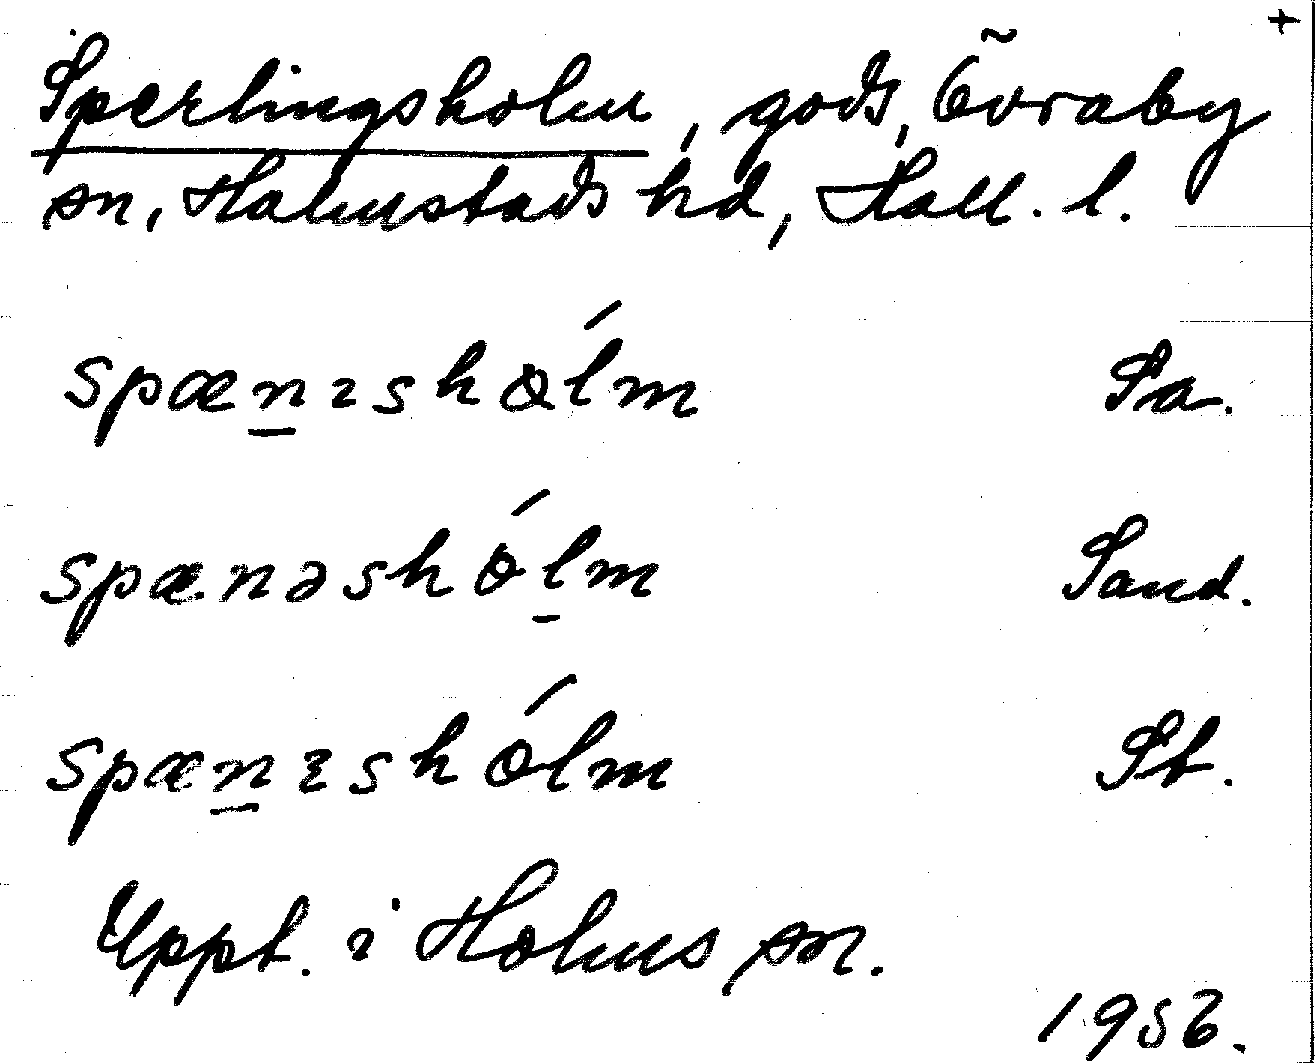 +
Sperlingsholm, gods, Övraby
sn, Halmstads hd, Hall. l.
spæn̲ɪshɑ́lm Sa.
spænəshól̲m Sand.
spæn̲ɛshólm St.
Uppt. i Holms sn.
1956.